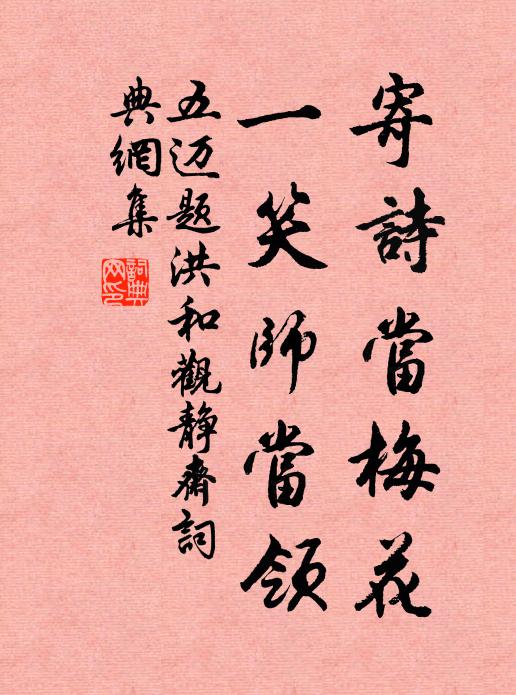 寄詩當梅花
一笑師當領
五迈题洪和觀静齋詞
典網集
詞典網印